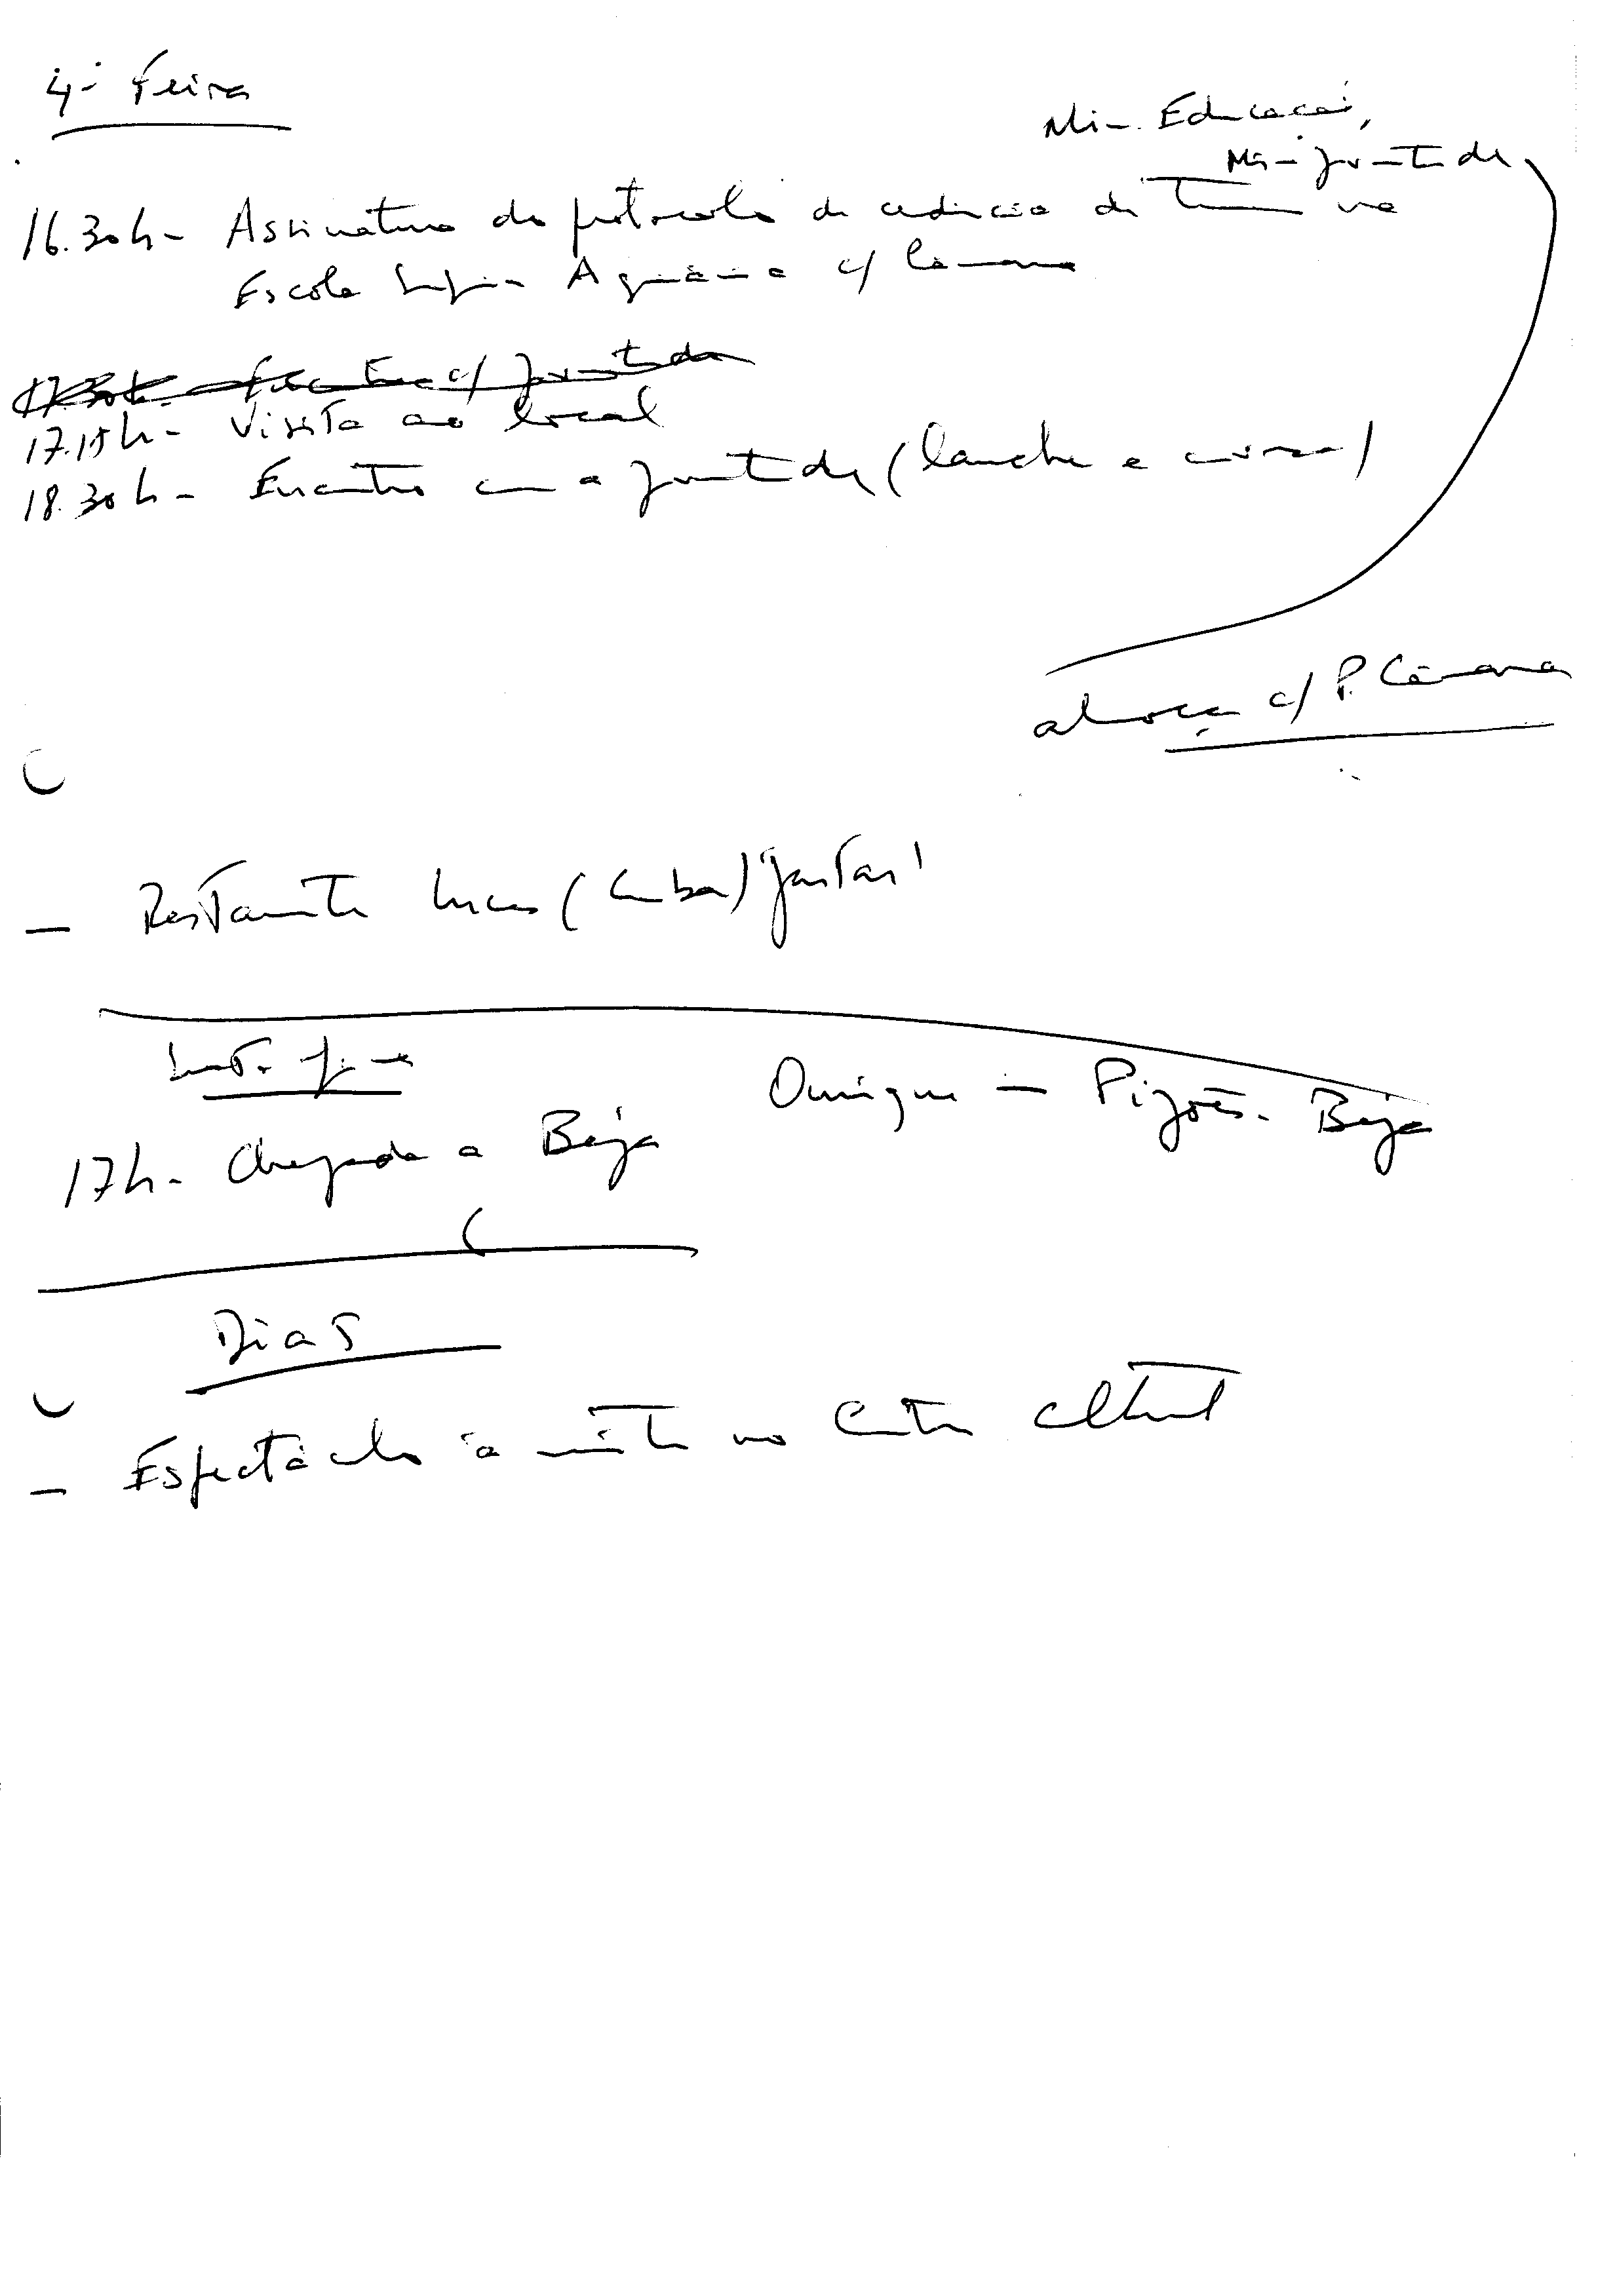 4ª Feira
Min. Educação,
Min. Juventude
16.30h - Assinatura do protocolo de cedência de terreno na
Escola Superior Agrária c/ Câmara
17.30h - Encontro c/ Juventude
17.15h - Visita ao local
18.30h - Encontro com a Juventude (lanche e conversa)
almoço c/ P. Câmara
- Restaurante Lucas (Cuba) jantar
Ourique - Pigões - Beja
17h - Chegada a Beja
Dia 5
- Espectáculo à noite no Centro Cultural